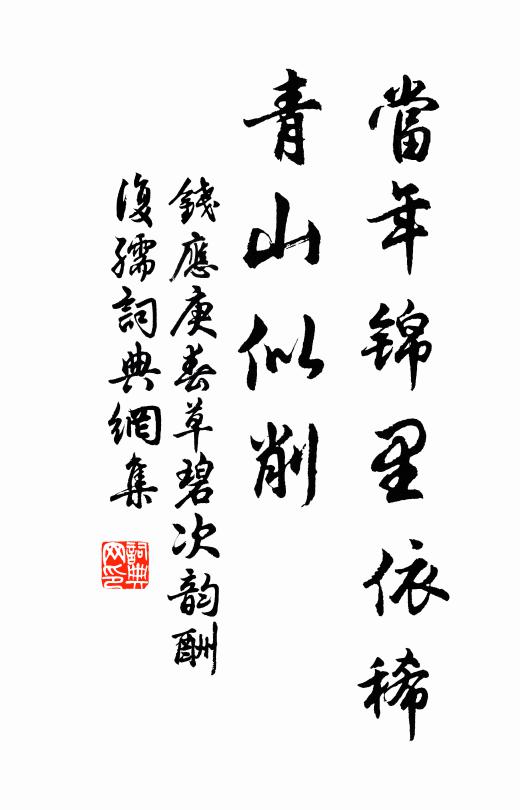 當年錦里依稀
青山似削
錢應庚春草碧次韵酬
復孺詞典網集
詞典
网印